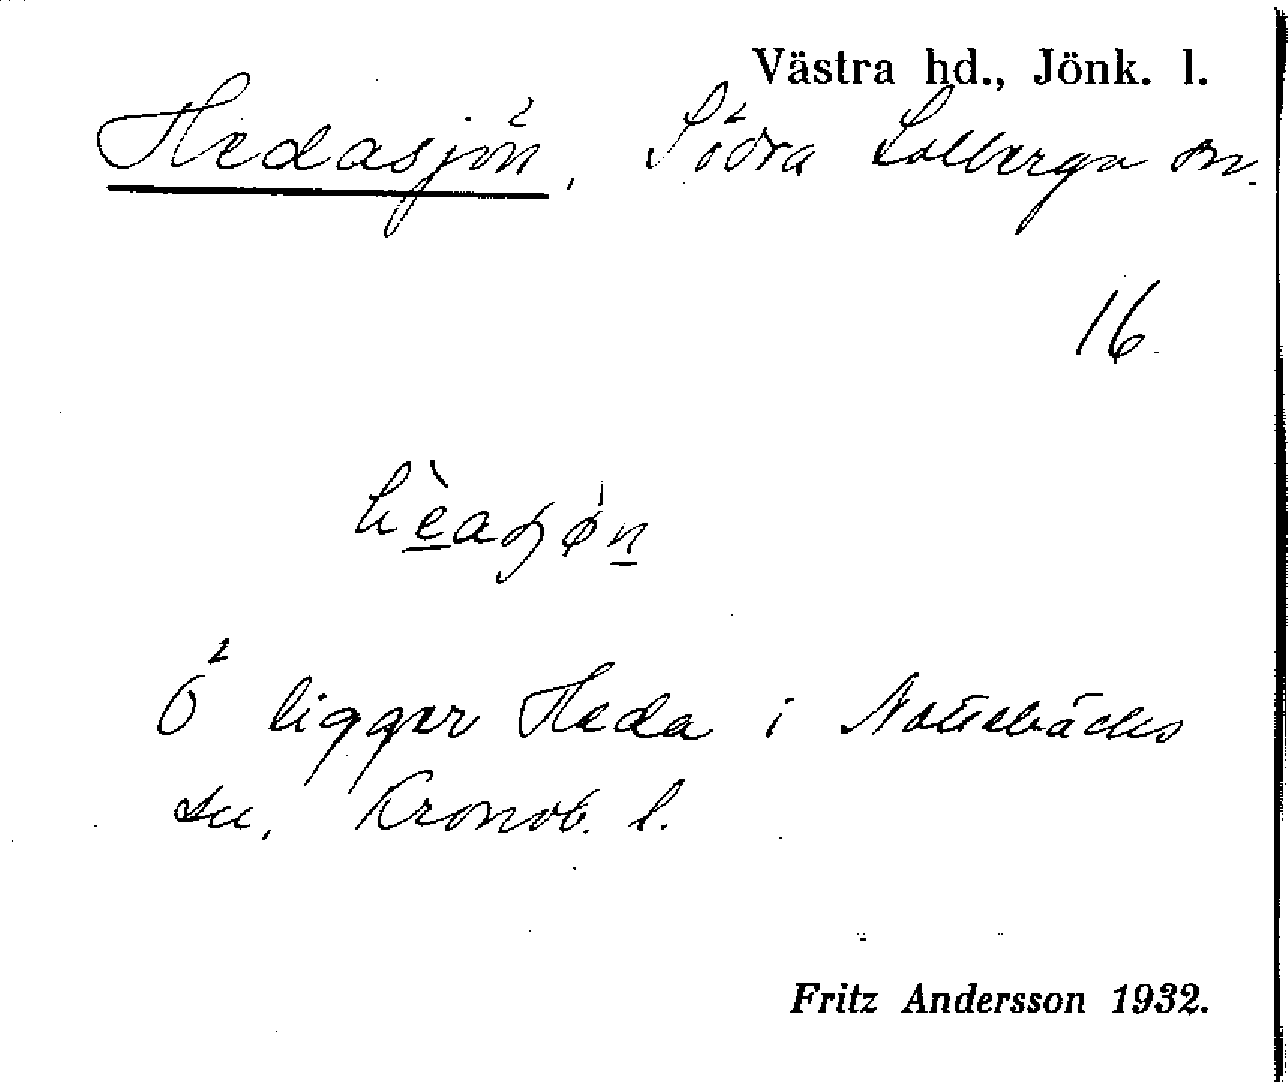 Västra hd., Jönk. l.
Hedasjön, Södra Solberga sn.
16
Ö ligger Heda i Nottebäcks
sn, Kronob. l.
Fritz Andersson 1932.